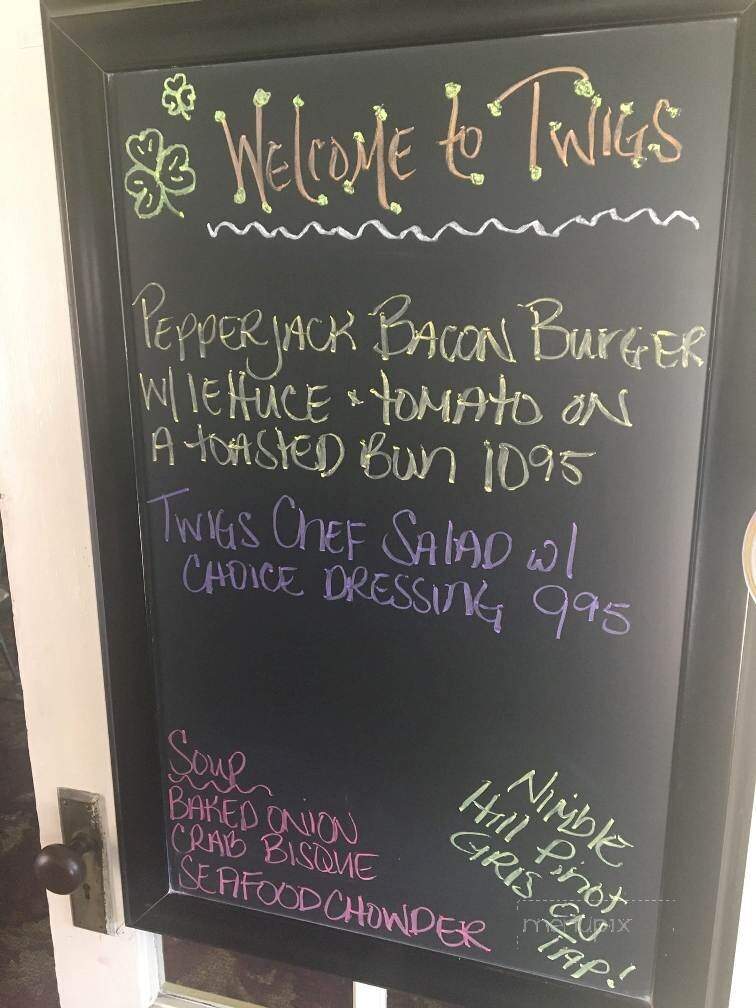 Welcome to Twigs
Pepperjack Bacon Burger
w/ lettuce & tomato on
a toasted bun 1095
Twigs Chef Salad w/
choice dressing 995
Soup
Baked Onion
Crab Bisque
Seafood Chowder
Nimble
Hill Pinot
Gris on
Tap!
menupix